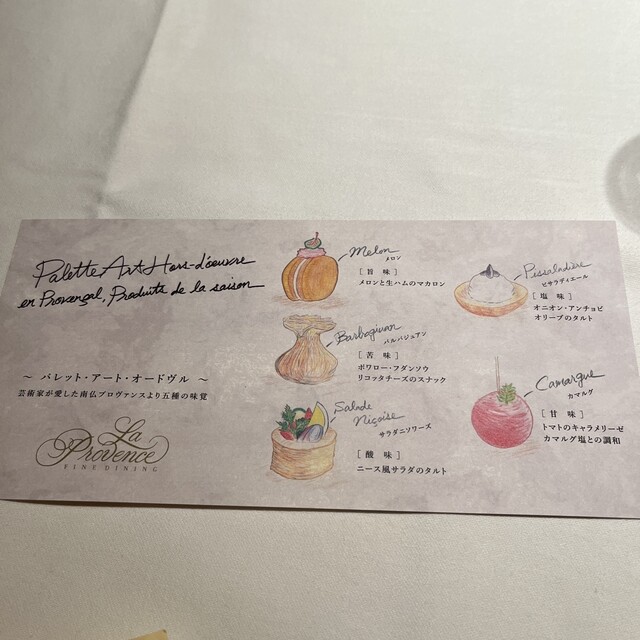 Palette Art Hors-d'oeuvre
en Provençal, Produits de la saison
～ パレット・アート・オードヴル ～
芸術家が愛した南仏プロヴァンスより五種の味覚
La
Provence
FINE DINING
Melon
メロン
[ 旨 味 ]
メロンと生ハムのマカロン
Barbagiuan
バルバジュアン
[ 苦 味 ]
ポワロー・フダンソウ
リコッタチーズのスナック
Salade
Niçoise
サラダニソワーズ
[ 酸 味 ]
ニース風サラダのタルト
Pissaladière
ピサラディエール
[ 塩 味 ]
オニオン・アンチョビ
オリーブのタルト
Camargue
カマルグ
[ 甘 味 ]
トマトのキャラメリーゼ
カマルグ塩との調和